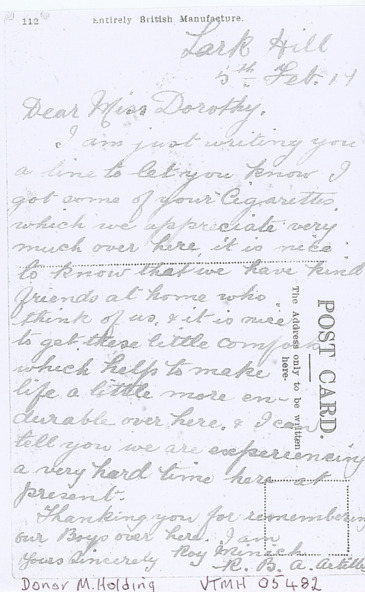 112
Entirely British Manufacture.
Lark Hill
5th Feb. 17
Dear Miss Dorothy.
I am just writing you
a line to let you know I
got some of your Cigarettes
which we appreciate very
much over here, it is nice
to know that we have kind
friends at home who
think of us, & it is nice
to get these little comforts
which helps to make
life a little more en-
durable over here, & I can
tell you we are experiencing
a very hard time here at
present.
Thanking you for remembering
our Boys over here. I am
Yours Sincerely Roy
R. B. A. Artillery
POST CARD.
The Address only to be written
here.
Donor M. Holding
VTMH 05482